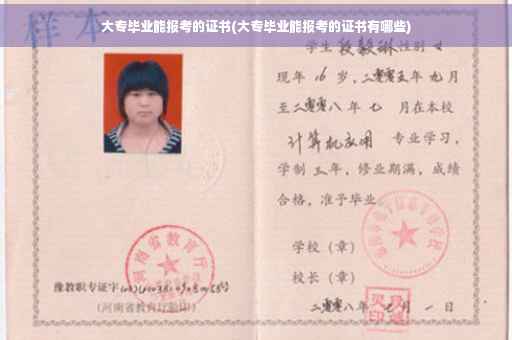 样本
大专毕业能报考的证书(大专毕业能报考的证书有哪些)
学生 段毅琳 性别 女
现年 16 岁，二零零五年 九月
至二零零八年 七 月在本校
计算机应用 专业学习，
学制 三 年，修业期满，成绩
合格，准予毕业
学校（章）
校长（章）
二零零八年 七 月 一 日
河南省教育厅
豫教职专证字
(河南省教育厅验印)